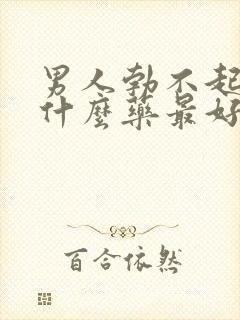 男人勃不起
什麼藥最好
百合依然